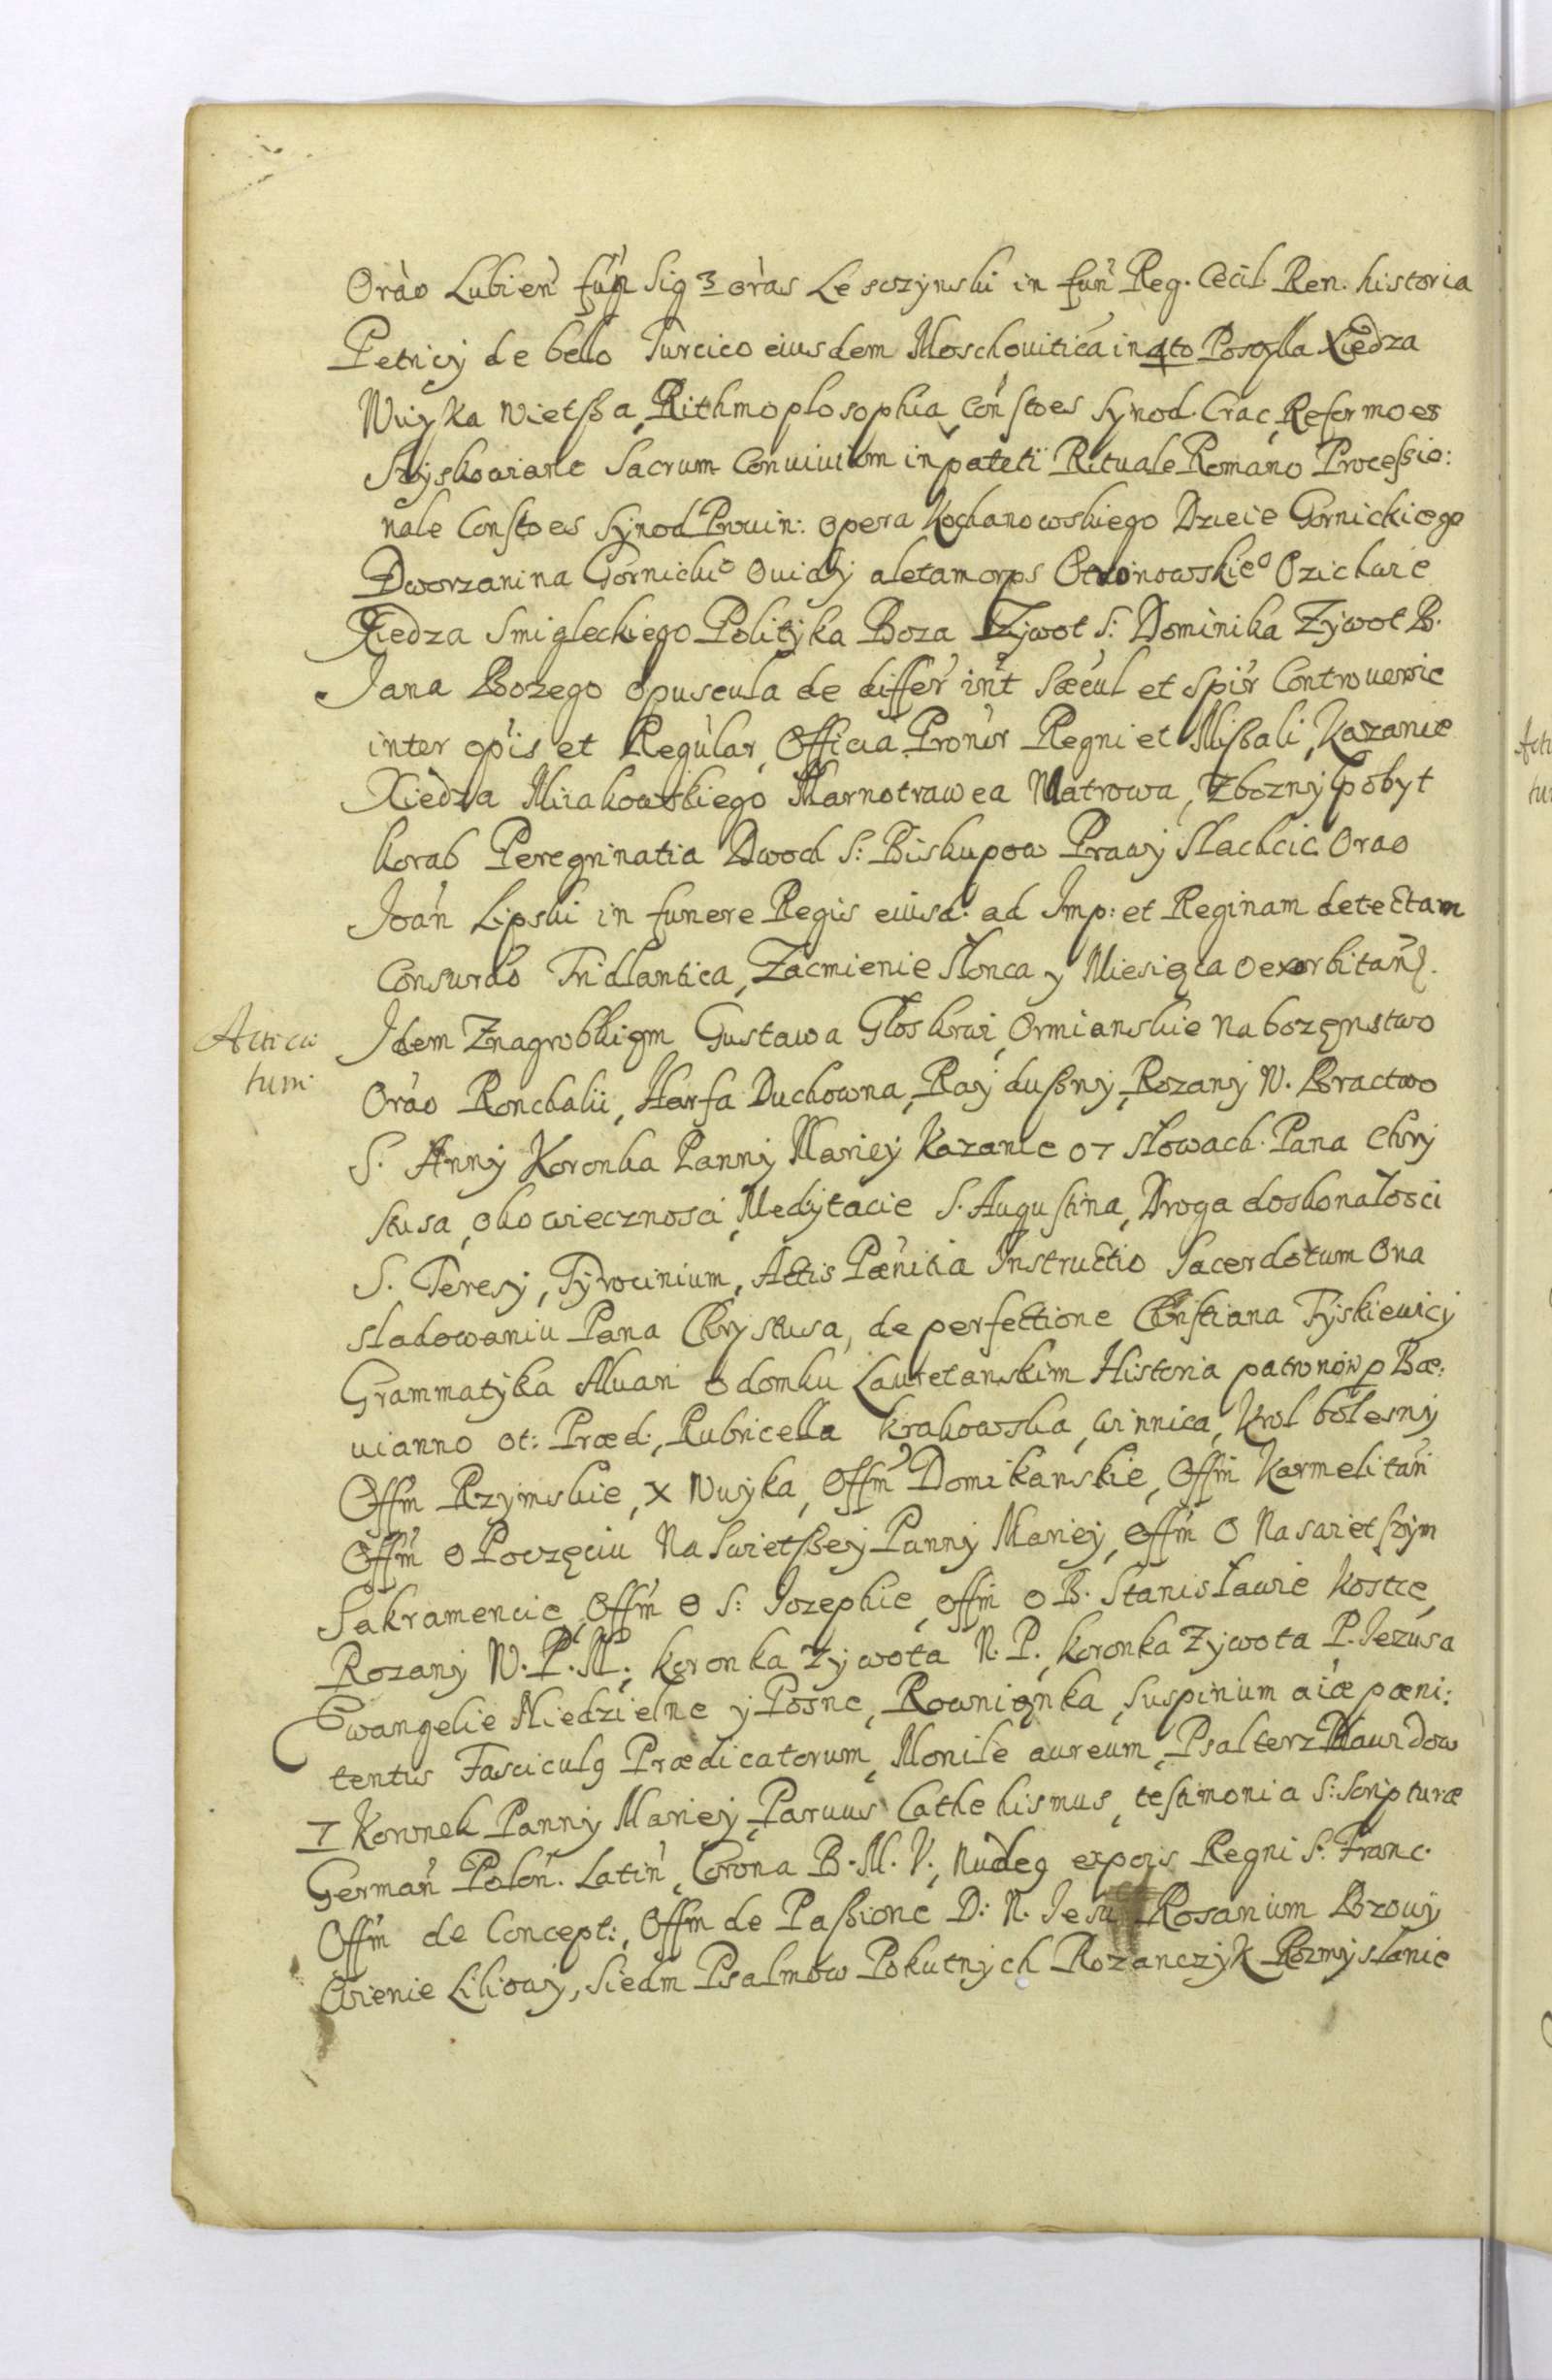 Orão Lubień fuń Sig 3 orãs Lesczynski in fuń Reg. Cecil. Ren. historia
Petricy de bello Turcico eiusdem Moschouitica in 4to Postylla Xiędza
Wuyka Wietßa, Rithmoplosophia, Conſtoes Synod. Crac, Reformoes
Szyskowianae Sacrum Conuiuium in Rituale Romano Proceßio:
nale Conſtoes Synod Prouin: opera Kochanowskiego Dzieie Gornickiego
Dworzanina Gornickio Ouidy Otwinowskieo O zichwie
Xiedza Smigleckiego Polityka Boza Zywot S: Dominika Zywot B.
Jana Bozego Opuscula de differ int sæcul et spir Controuersie
inter opis et Regular, Officia Regni et Mißali, Kazanie
Xiedza Mirakowskiego Marnotrawca Zbozny pobyt
korab Peregrinatia Dwoch S: Biskupow Prawy Slachcic Orao
Joan Lipski in funere Regis eiusd: ad Imp: et Reginam detectam
Fridlantica, Zacmienie Słonca y Miesięca O exorbitan.
Acticatum
Idem Znagrobkiem Gustawa Głoskowi, Ormianskie nabozęnstwo
Orao Ronchalii, Harfa Duchowna, Ray dußny, Rozany W. Bractwo
S. Anny Koronka Panny Mariey Kazanie o 7 słowach Pana Chry
stusa, oko wiecznosci, Medytacie S. Auguſtina, Droga doskonałosci
S. Teresy, Tyrocinium, Actis Pœnitia Instructio Sacerdotum O na
sladowaniu Pana Chrystusa, de perfectione Chriſtiana Tyskiewicy
Grammatyka Aluari O domku Lauretanskim Historia patronow p Bæ:
uianno ot: Præd:, Rubricella krakowska, winnica, Krol bolesny
Offm Rzymskie, X Wuyka, Offm Domikanskie, Offm Karmelitań
Offm O Poczęciu Naswietßey Panny Mariey, Offm O Naswietſzym
Sakramencie, Offm O S: Jozephie, offm O B. Stanisławie Kostce,
Rozany W. P. M; koronka Zywota N. P. koronka Zywota P. Jezusa
Ewangelie Niedzielne y Posne, Rowniąnka, Suspirium aiæ pœni:
tentis Fasciculg Prædicatorum, Monile aureum, Psalterz Dauidow
7 Koronek Panny Mariey Paruus Cathekismus, teſtimonia S: Scripturæ
German Polon. Latin, Corona B. M. V., nudeg Regni S. Franc.
Offm de Concept:, Offm de Paßione D: N. Iesu Rosarium Bzouy
Wienie Liliowy, Siedm Psalmow Pokutnych Rozanczyk Rozmyslanie